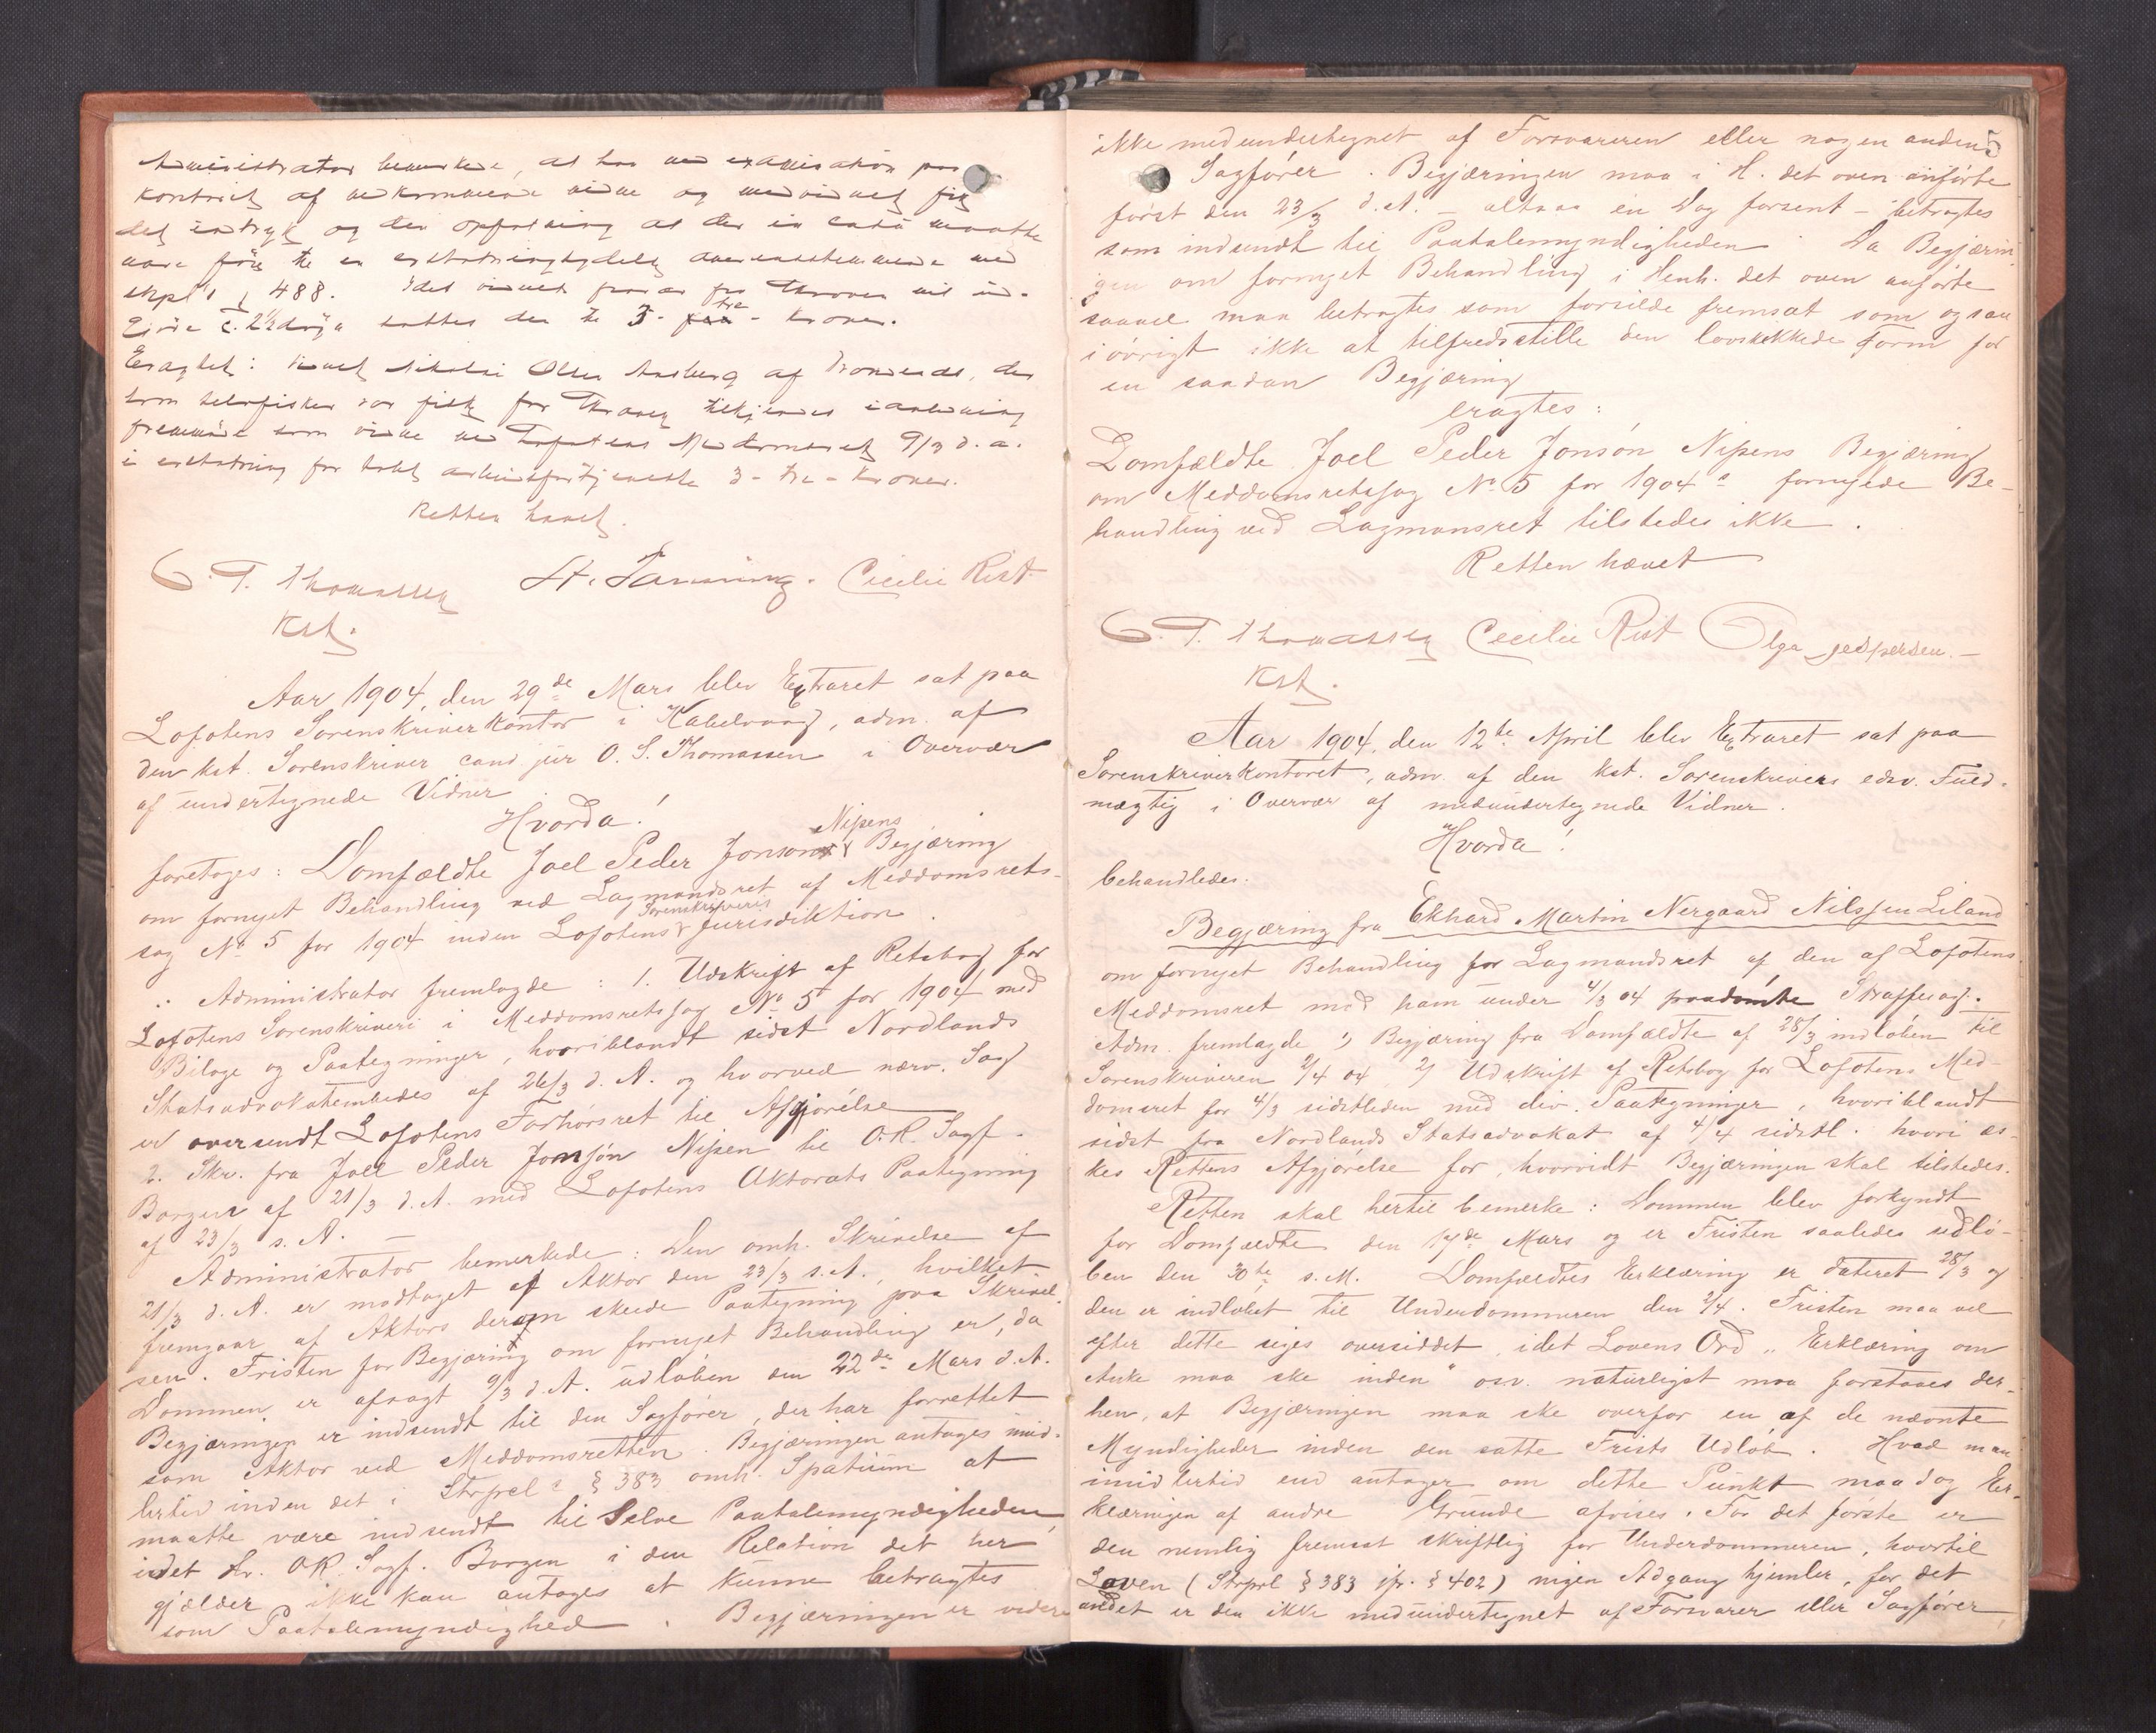 Administrator bemerkede, at han ved examination paa
kontoret af vedkommende vidne og medvidnet fik
det indtryk og den opfatning at der in casu maatte
være föie til en erstatningsydelse overensstemmende med
skpl's § 488. Idet vidnets fravær fra Thranen vil ud-
gjöre c. 2½ dag a sattes den til 3 - tre - kroner.
Eragtet: Vidnet Nikolai Olsen Aasberg af, der
som selvfisker var fisk for tilkjendes i anledning
fremmöde som vidne ved Lofotens Meddomsret 9/3 d.a.
i erstatning for tabt arbeidsfortjeneste 3 - tre - kroner.
Retten hævet.
O. S. Thomassen St. Tanning. Cecilie Rist
Kst.
Aar 1904, den 29de Mars blev Extraret sat paa
Lofotens Sorenskriverkontor i Kabelvaag, adm. af
den kst. Sorenskriver cand. jur O. S. Thomassen i Overvær
af undertegnede Vidner
Hvorda!
foretoges: Domfældte Joel Peder Jonson Nipens Begjæring
om fornyet Behandling ved Lagmandsret af Meddomsrets-
sag No 5 for 1904 inden Lofotens Sorenskriveris Jurisdiktion.
Administrator fremlagde: 1. Udskrift af Retsbog for
Lofotens Sorenskriveri i Meddomsretssag No 5 for 1904 med
Bilage og Paategninger, hvoriblandt sidst Nordlands
Statsadvokatembedes af 26/3 d. A. og hvorved nærv. Sag
er oversendt Lofotens Forhörsret til Afgjörelse
2. Skr. fra Joel Peder Jonsön Nipen til O.R. Sagf.
Borgen af 21/3 d. A. med Lofotens Aktorats Paategning
af 23/3 s. A. —
Administrator bemerkede: Den omh. Skrivelse af
21/3 d. A. er modtaget af Aktor den 23/3 s. A., hvilket
fremgaar af Aktors derom skeede Paategning paa Skrivel-
sen. Fristen for Begjæring om fornyet Behandling er, da
Dommen er afsagt 9/3 d. A. udlöben den 22de Mars d. A.
Begjæringen er indsendt til den Sagförer, der har forrettet
som Aktor ved Meddomsretten. Begjæringen antages imid-
lertid inden det i Strprl's § 383 omh. Spatium at
maatte være indsendt til Selve Paatalemyndigheden,
idet Hr. OR. Sagf. Borgen i den Relation det her
gjælder ikke kan antages at kunne betragtes
som Paatalemyndighed. Begjæringen er videre
5
ikke medundertegnet af Forsvareren eller nogen anden
Sagförer. Begjæringen maa i H. det oven anförte
först den 23/3 d. A. - altsaa en Dag forsent - betragtes
som indsendt til Paatalemyndigheden. Da Begjærin-
gen om fornyet Behandling i Henh. det oven anförte
saavel maa betragtes som forsilde fremsat som ogsaa
iövrigt ikke at tilfredsstille den lovskikkede Form for
en saadan Begjæring
eragtes:
Domfældte Joel Peder Jonsön Nipens Begjæring
om Meddomsretssag No 5 for 1904s fornyede Be-
handling ved Lagmansret tilstedes ikke.
Retten hævet
O. S. Thomassen Cecilie Rist Olga Jespersen. —
Kst.
Aar 1904, den 12te April blev Extraret sat paa
Sorenskriverkontoret, adm. af den kst. Sorenskrivers edsv. Fuld-
mægtig i Overvær af medundertegnede Vidner.
Hvorda!
behandledes:
Begjæring fra Ekhard Martin Nergaard Nilssen Liland
om fornyet Behandling for Lagmandsret af den af Lofotens
Meddomsret mod ham under 4/3 04 paadömte Straffesag.
Adm. fremlagde 1) Begjæring fra Domfældte af 28/3 indloben til
Sorenskriveren 2/4 04 2) Udskrift af Retsbog for Lofotens Med-
domsret for 4/3 sidstleden med div. Paategninger, hvoriblandt
sidst fra Nordlands Statsadvokat af 4/4 sidstl. hvori æs-
kes Rettens Afgjörelse for, hvorvidt Begjæringen skal tilstedes.
Retten skal hertil bemerke: Dommen blev forkyndt
for Domfældte den 17de Mars og er Fristen saaledes udlö-
ben den 30te s. M. Domfældtes Erklæring er dateret 28/3 og
den er indlöbet til Underdommeren den 2/4. Fristen maa vel
efter dette siges oversiddet, idet Lovens Ord „Erklæring om
Anke maa ske inden" osv. naturligst maa forstaaes der-
hen, at Begjæringen maa ske overfor en af de nævnte
Myndigheder inden den satte Frists Udlöb. Hvad man
imidlertid end antager om dette Punkt maa dog Er-
klæringen af andre Grunde afvises. For det förste er
den nemlig fremsat skriftlig for Underdommeren, hvortil
Loven (Strprl § 383 jfr. § 402) ingen Adgang hjemler, for det
andet er den ikke medundertegnet af Forsvarer eller Sagförer,